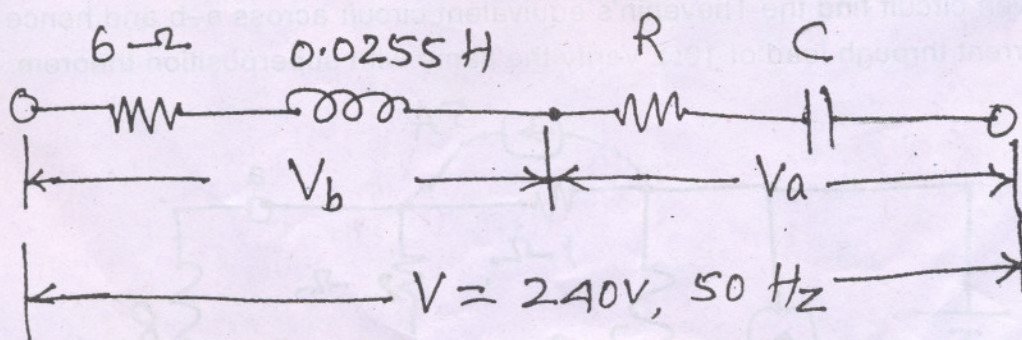 6 Ω 0.0255 H R C
Vb Va
V = 240V, 50 Hz